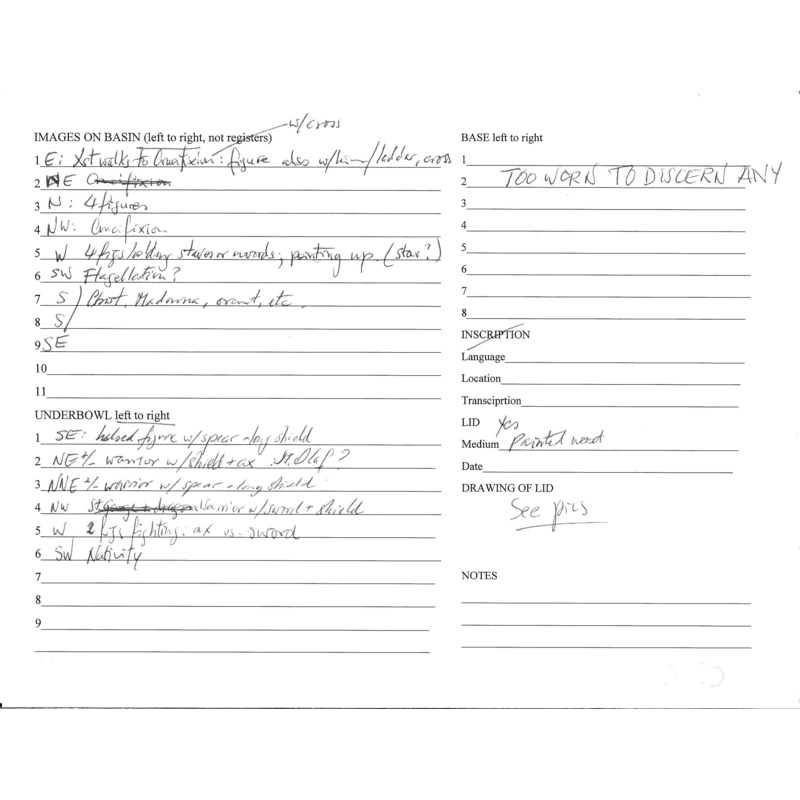 w/cross
IMAGES ON BASIN (left to right, not registers)
1 E: Xst walks to Crucifixion: figure also w/him/ladder, cross
2 NE Crucifixion
3 N: 4 figures
4 NW: Crucifixion
5 W 4 figs holding staves or swords; pointing up (star?)
6 SW Flagellation?
7 S Christ, Madonna, orant, etc.
8 S
9 SE
10
11
UNDERBOWL left to right
1 SE: haloed figure w/spear + long shield
2 NE +/- warrior w/shield + ax St. Olaf?
3 NNE +/- warrior w/spear + long shield
4 NW St George + dragon Warrior w/sword + shield
5 W 2 figs fighting: ax vs. sword
6 SW Nativity
7
8
9
BASE left to right
1
2 TOO WORN TO DISCERN ANY
3
4
5
6
7
8
INSCRIPTION
Language
Location
Transciprtion
LID Yes
Medium painted wood
Date
DRAWING OF LID
See pics
NOTES